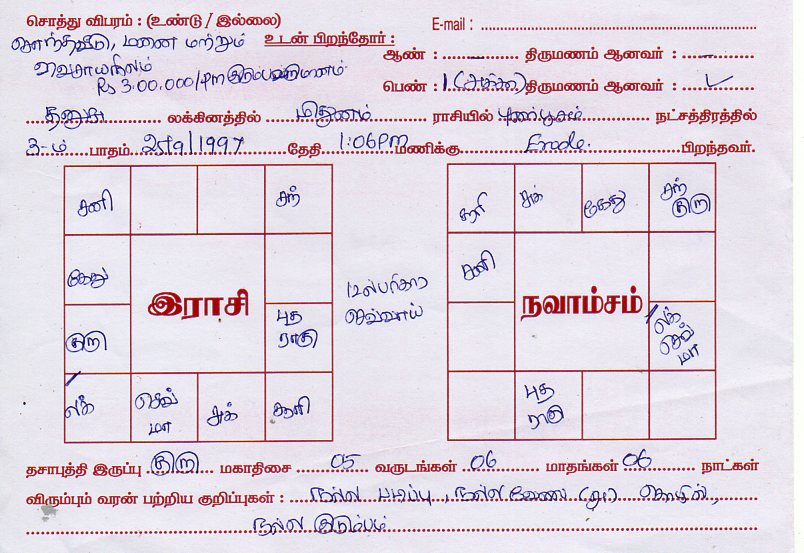 சொத்து விபரம் : (உண்டு / இல்லை)
சொந்தவீடு, மனை மற்றும்
விவசாயநிலம்
Rs 3.00.000/Pm குடும்பவருமானம்
E-mail :
உடன் பிறந்தோர் :
ஆண் : திருமணம் ஆனவர் : -
பெண் : 1 (அக்கா) திருமணம் ஆனவர் : ✓
தனுசு லக்கினத்தில் மிதுனம் ராசியில் புனர்பூசம் நட்சத்திரத்தில்
3-ம் பாதம் 25/9/1997 தேதி 1:06PM மணிக்கு Erode. பிறந்தவர்.
சனி சந்
கேது
குரு
புத
ராகு
லக் செவ்
மா சுக் சூரி
இராசி
பரிகார
செவ்வாய்
சூரி சுக் கேது சந்
குரு
சனி
லக்
செவ்
மா
புத
ராகு
நவாம்சம்
தசாபுத்தி இருப்பு குரு மகாதிசை 05 வருடங்கள் 06 மாதங்கள் 06 நாட்கள்
விரும்பும் வரன் பற்றிய குறிப்புகள் : நல்ல படிப்பு, நல்ல வேலை (அ) தொழில்,
நல்ல குடும்பம்